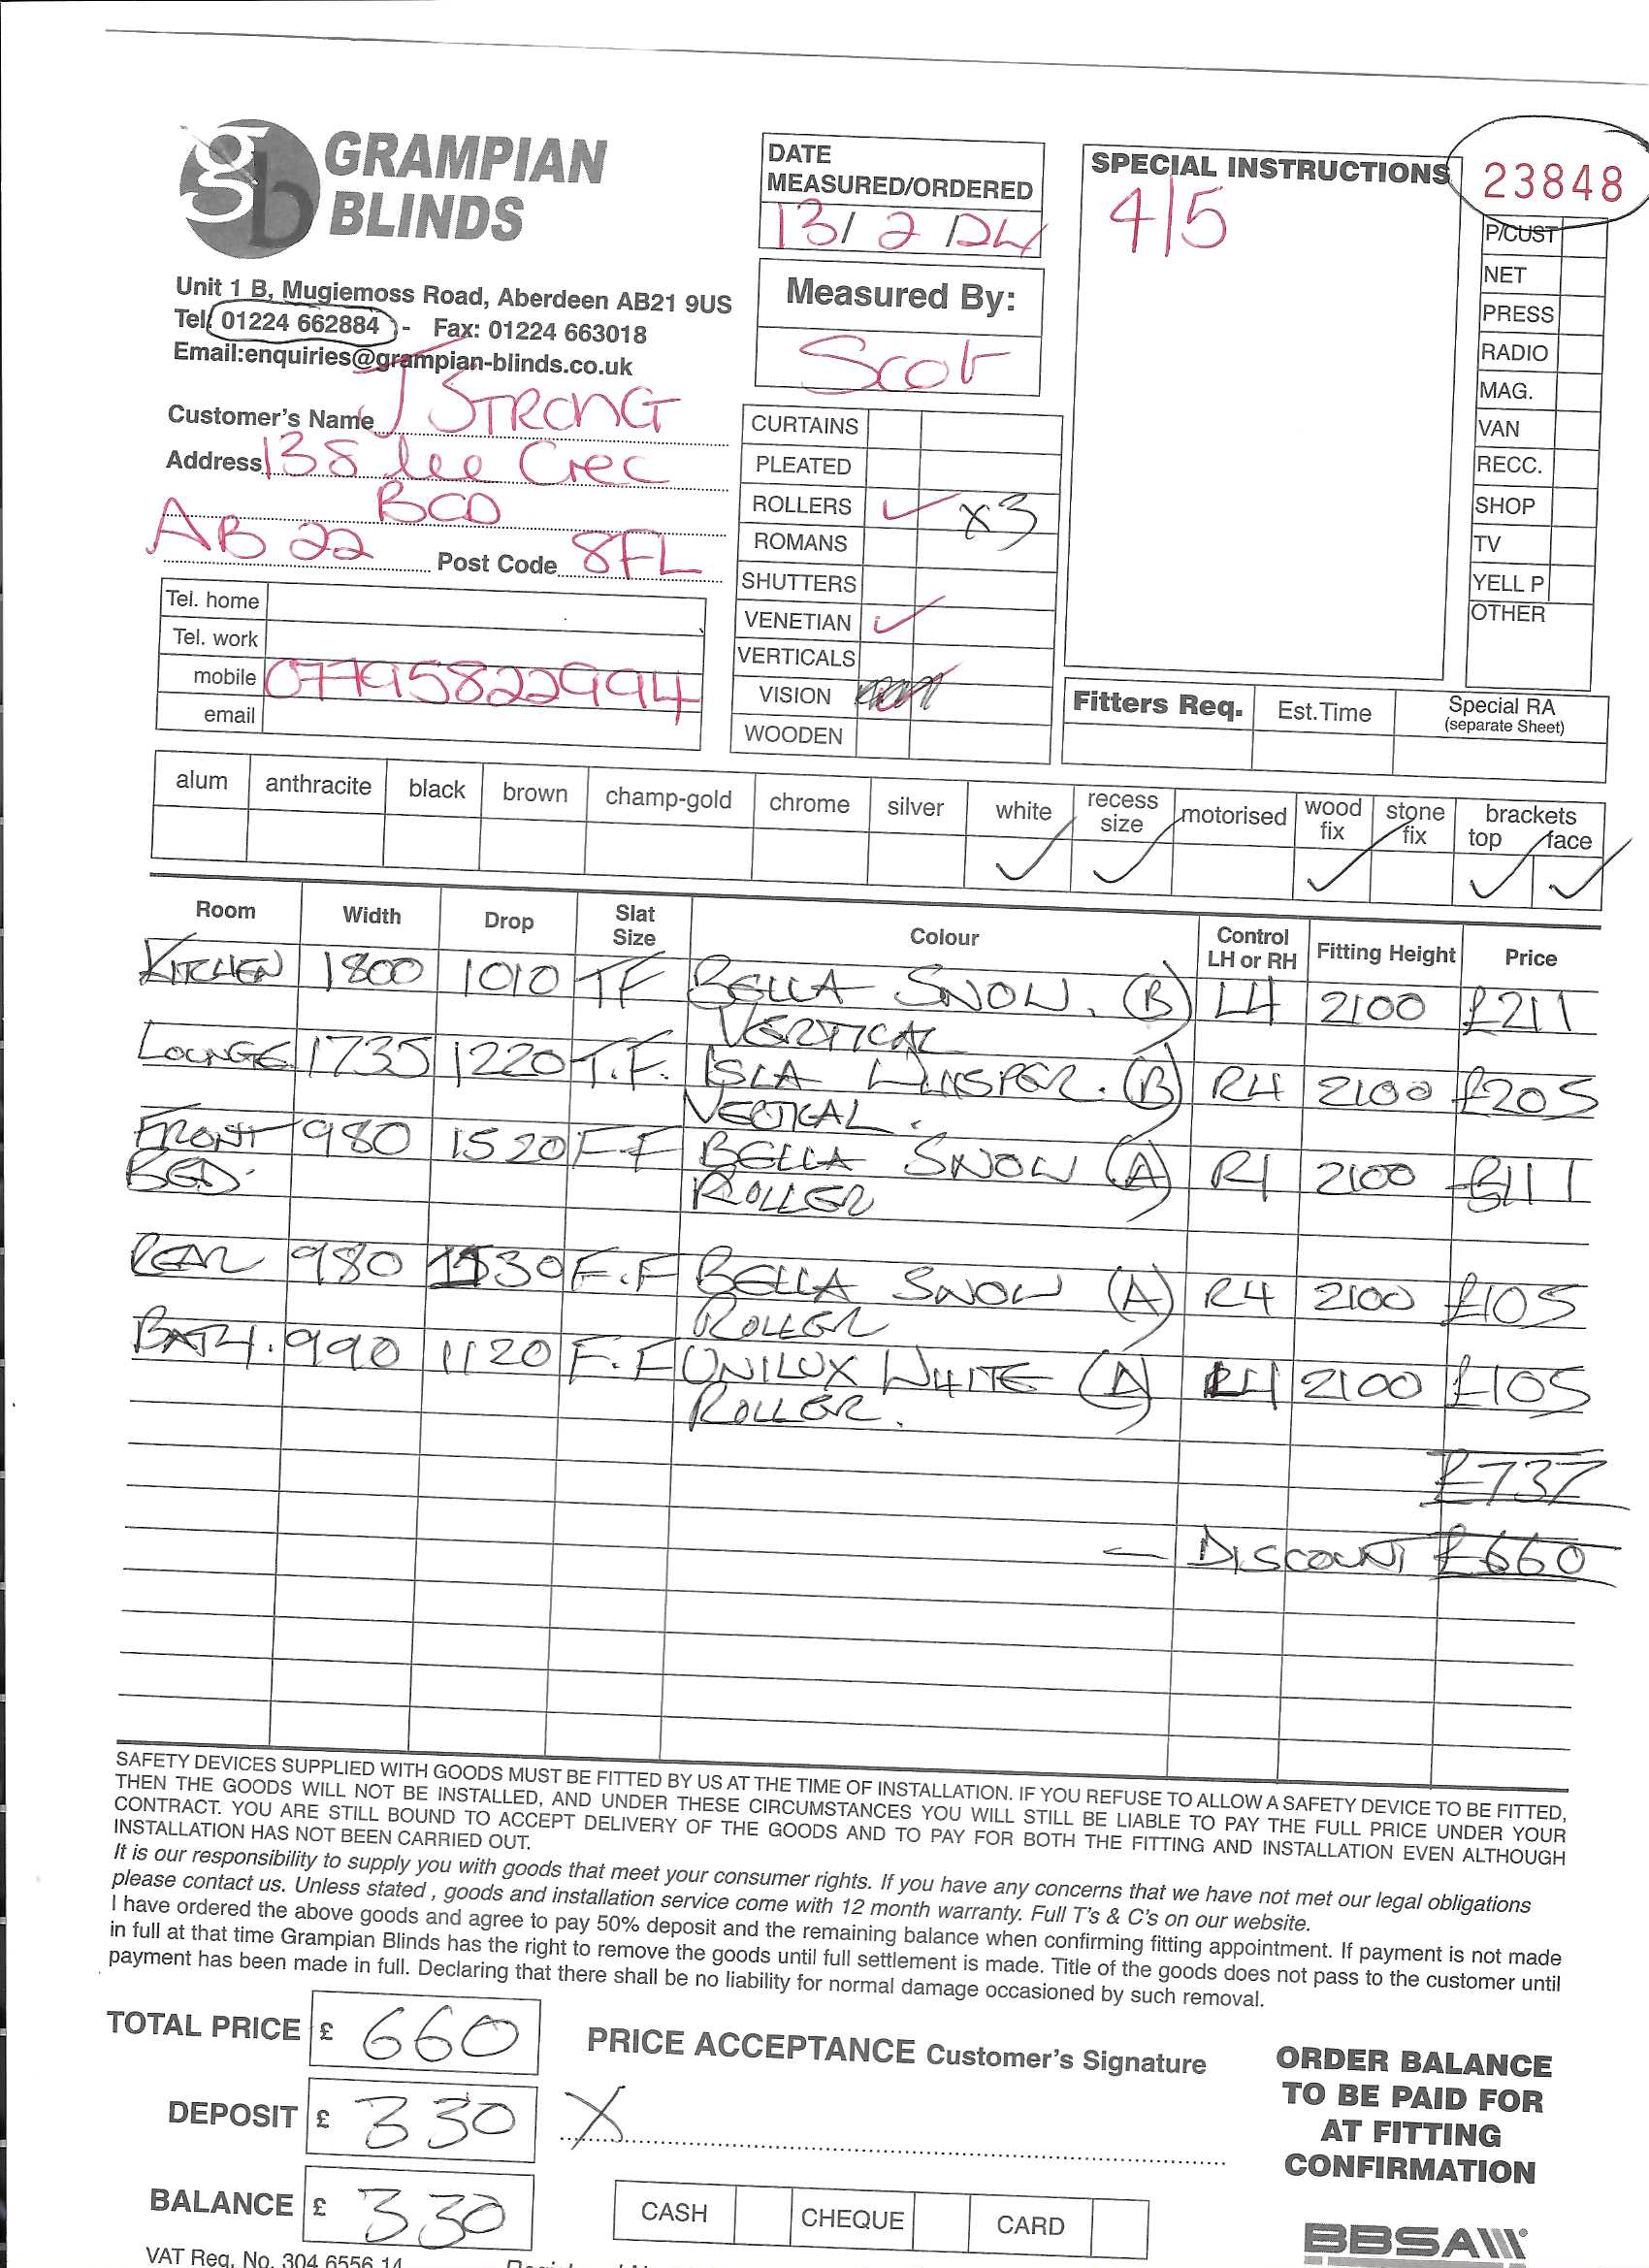 gb GRAMPIAN
BLINDS
Unit 1 B, Mugiemoss Road, Aberdeen AB21 9US
Tel: 01224 662884 - Fax: 01224 663018
Email:enquiries@grampian-blinds.co.uk
Customer's Name J STRONG
Address 138 Lee Crec
BOD
AB 22 Post Code 8FL
Tel. home
Tel. work
mobile 07795822994
email
DATE
MEASURED/ORDERED
13/2/24
Measured By:
Scot
CURTAINS
PLEATED
ROLLERS ✓ x3
ROMANS
SHUTTERS
VENETIAN ✓
VERTICALS
VISION
WOODEN
SPECIAL INSTRUCTIONS
4/5
23848
P/CUST
NET
PRESS
RADIO
MAG.
VAN
RECC.
SHOP
TV
YELL P
OTHER
Fitters Req. Est.Time Special RA
(separate Sheet)
alum anthracite black brown champ-gold chrome silver white recess size motorised wood fix stone fix brackets top face
✓ ✓ ✓ ✓ ✓
Room Width Drop Slat Size Colour Control LH or RH Fitting Height Price
KITCHEN 1800 1010 TF BELLA SNOW. (B) LH 2100 £211
VERTICAL
LOUNGE 1735 1220 T.F. ISLA WHISPER. (B) RH 2100 £205
VERTICAL.
FRONT 980 1520 F-F BELLA SNOW (A) RH 2100 £111
BED. ROLLER
REAR 980 1530 F.F BELLA SNOW (A) RH 2100 £105
ROLLER
BATH. 990 1120 F.F UNILUX WHITE (A) LH 2100 £105
ROLLER.
£737
– DISCOUNT £660
SAFETY DEVICES SUPPLIED WITH GOODS MUST BE FITTED BY US AT THE TIME OF INSTALLATION. IF YOU REFUSE TO ALLOW A SAFETY DEVICE TO BE FITTED,
THEN THE GOODS WILL NOT BE INSTALLED, AND UNDER THESE CIRCUMSTANCES YOU WILL STILL BE LIABLE TO PAY THE FULL PRICE UNDER YOUR
CONTRACT. YOU ARE STILL BOUND TO ACCEPT DELIVERY OF THE GOODS AND TO PAY FOR BOTH THE FITTING AND INSTALLATION EVEN ALTHOUGH
INSTALLATION HAS NOT BEEN CARRIED OUT.
It is our responsibility to supply you with goods that meet your consumer rights. If you have any concerns that we have not met our legal obligations
please contact us. Unless stated , goods and installation service come with 12 month warranty. Full T's & C's on our website.
I have ordered the above goods and agree to pay 50% deposit and the remaining balance when confirming fitting appointment. If payment is not made
in full at that time Grampian Blinds has the right to remove the goods until full settlement is made. Title of the goods does not pass to the customer until
payment has been made in full. Declaring that there shall be no liability for normal damage occasioned by such removal.
TOTAL PRICE £ 660
DEPOSIT £ 330
BALANCE £ 330
PRICE ACCEPTANCE Customer's Signature
X
CASH CHEQUE CARD
ORDER BALANCE
TO BE PAID FOR
AT FITTING
CONFIRMATION
BBSA
VAT Reg. No. 304 6556 14